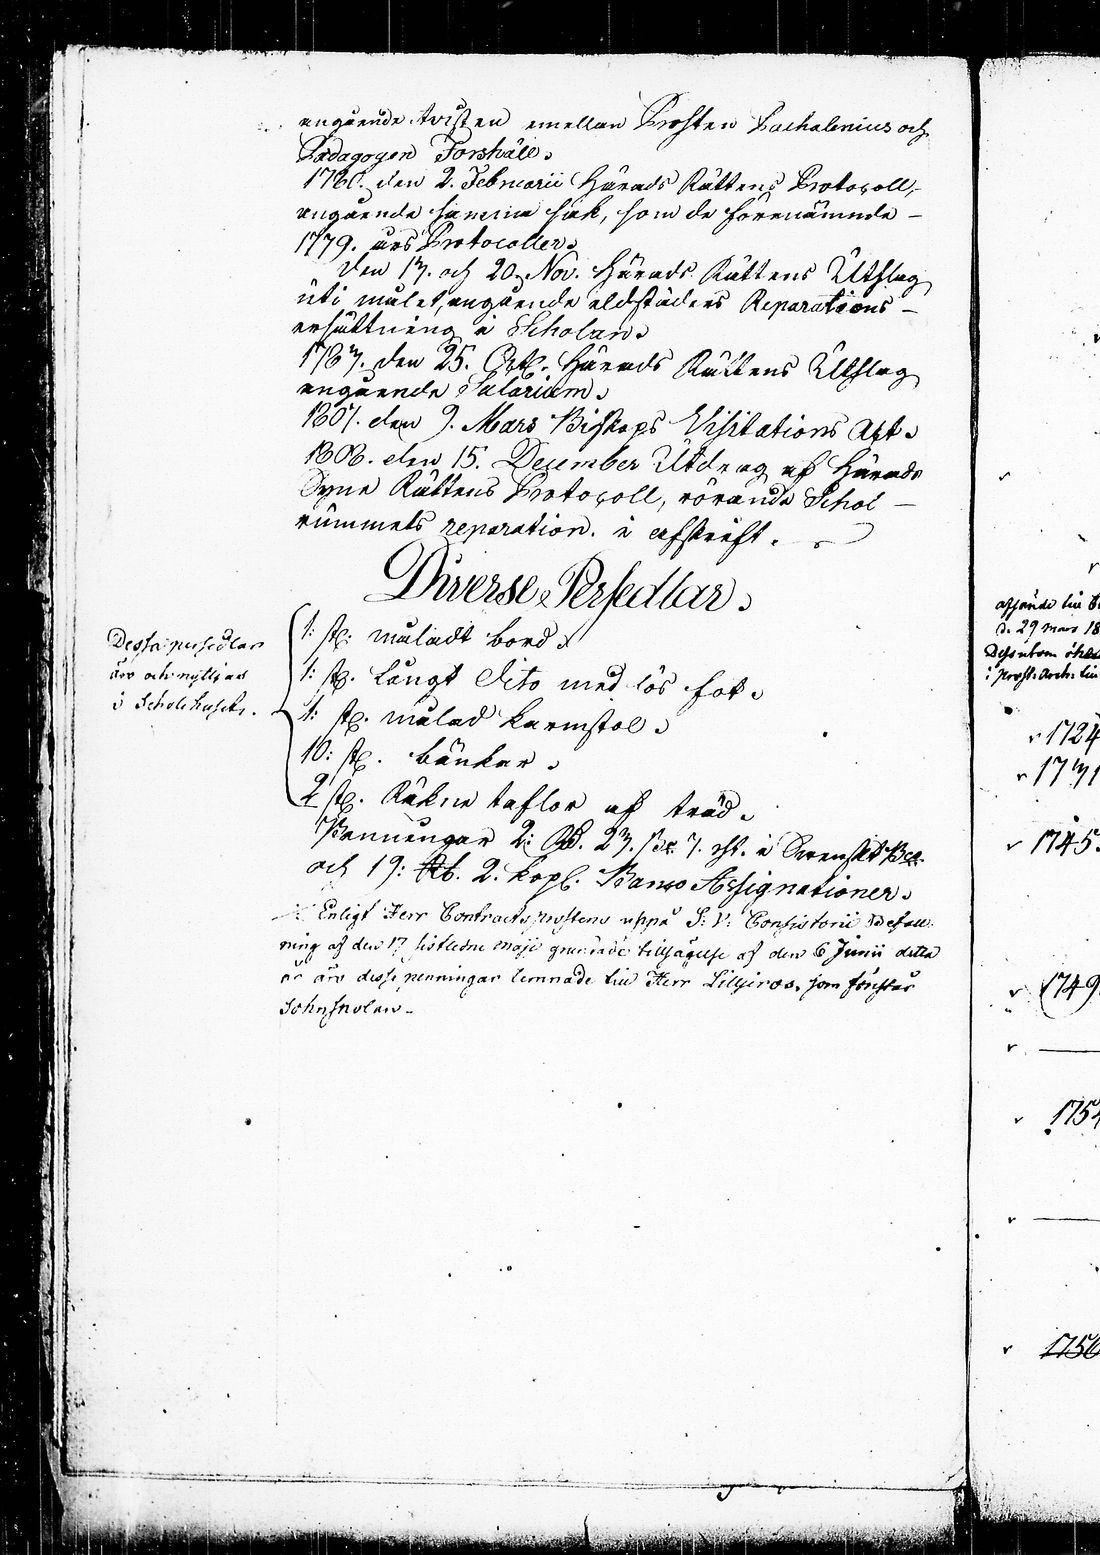 angående tvisten emellan Prosten Pachalenius och
Pædagogen Forshäll.
1780. den 2. Februarii Härads Rättens Protocoll,
angående samma sak, som de förenämnde
1779. års Protocoller.
den 17. och 20. Nov. Härads Rättens Utslag
uti målet, angående eldstädens Reparations-
ersättning i Scholan.
1787. den 25. Oct. Härads Rättens Utslag
angående Salarium.
1801. den 9. Mars Biskops Visitations Act.
1808. den 15. December Utdrag af Härads
Syne Rättens Protocoll, rörande Schol-
rummets reparation. i afskrift.
Diverse Persedlar.
1: st. måladt bord.
1: st. Långt dito med lös fot.
1: st. målad karmstol.
10: st. bänkar.
2 st. Räkne taflor af träd.
Dessa persedlar
äro och nyttjas
i Scholehuset.
Penningar 2: Rd. 27. sk. 7. rst. i Svenskt
och 19: Rd. 2. kopl. Banco Assignationer.
Enligt Herr Contractsprostens uppå S: V: Consistorii Befall-
ning af den 17 sistledne Maji grundade tillsägelse af den 6 Junii detta
år äro desse penningar lemnade till Herr Liljeroos, som förestår
Schnskolan.
afsände till
d. 29 mars 18
Dessutom
i prost. Arch. till
1724
1731
1745.
1749.
1754
1756